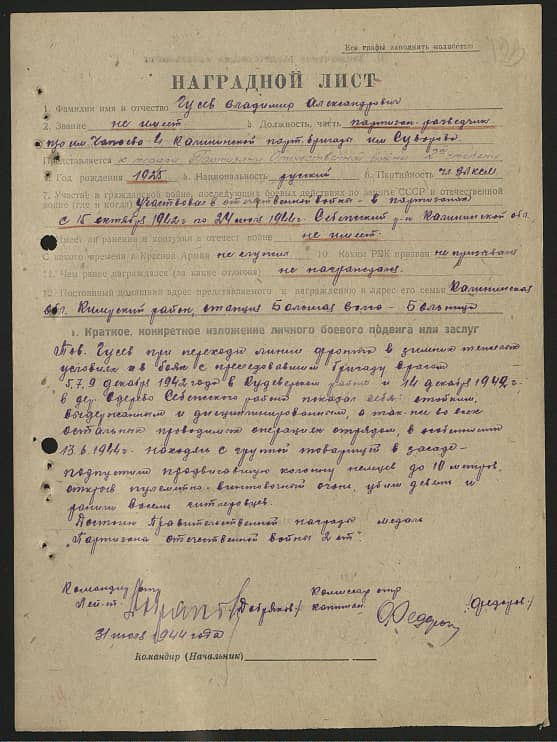 Все графы заполнять полностью
НАГРАДНОЙ ЛИСТ
1. Фамилия имя и отчество Гусев Владимир Александрович
2. Звание не имеет 3. Должность, часть партизан-разведчик
Калининской парт. бригады им Суворова
Представляется к медали Партизану Отечественной войны 2й степени
4. Год рождения 1925 5. Национальность русский 6. Партийность чл ВЛКСМ
7. Участие в гражданской войне, последующих боевых действиях по защите СССР и отечественной
войне (где и когда) Участвовал в отечественной войне в партизанах
с 15 октября 1942 г по 24 июля 1944 г. Себежский р-н Калининской обл.
8. Имеет ли ранения и контузии в отечест войне не имеет
9. С какого времени в Красной Армии не служил 10. Каким РВК призван не призывался
11. Чем ранее награждался (за какие отличия) не награждался.
12. Постоянный домашний адрес представляемого к награждению и адрес его семьи Калининская
обл. Кимрский район, станция Большая Волга - Больница
1. Краткое, конкретное изложение личного боевого подвига или заслуг
Тов. Гусев при переходе линии фронта в зимних тяжелых
условиях и в боях с преследовавшим бригаду врагом
5.7.9 декабря 1942 года в Кудеверском районе и 14 декабря 1942 г.
в дер. Себежского района показал себя: стойким,
выдержанным и дисциплинированным, а так-же во всех
остальных проводимых операциях отрядом, в особенности
13.6.1944 г. находясь с группой товарищей в засаде -
подпустили продвигавшую колонну немцев до 10 метров,
открыв пулеметно-винтовочный огонь, убили девять и
ранили восемь гитлеровцев.
Достоин Правительственной награды медаль
"Партизана отечественной войны 2 ст".
Командир отр Комиссар отр
Лей-т капитан (Федоров)
31 июля 1944 года
Командир (Начальник)